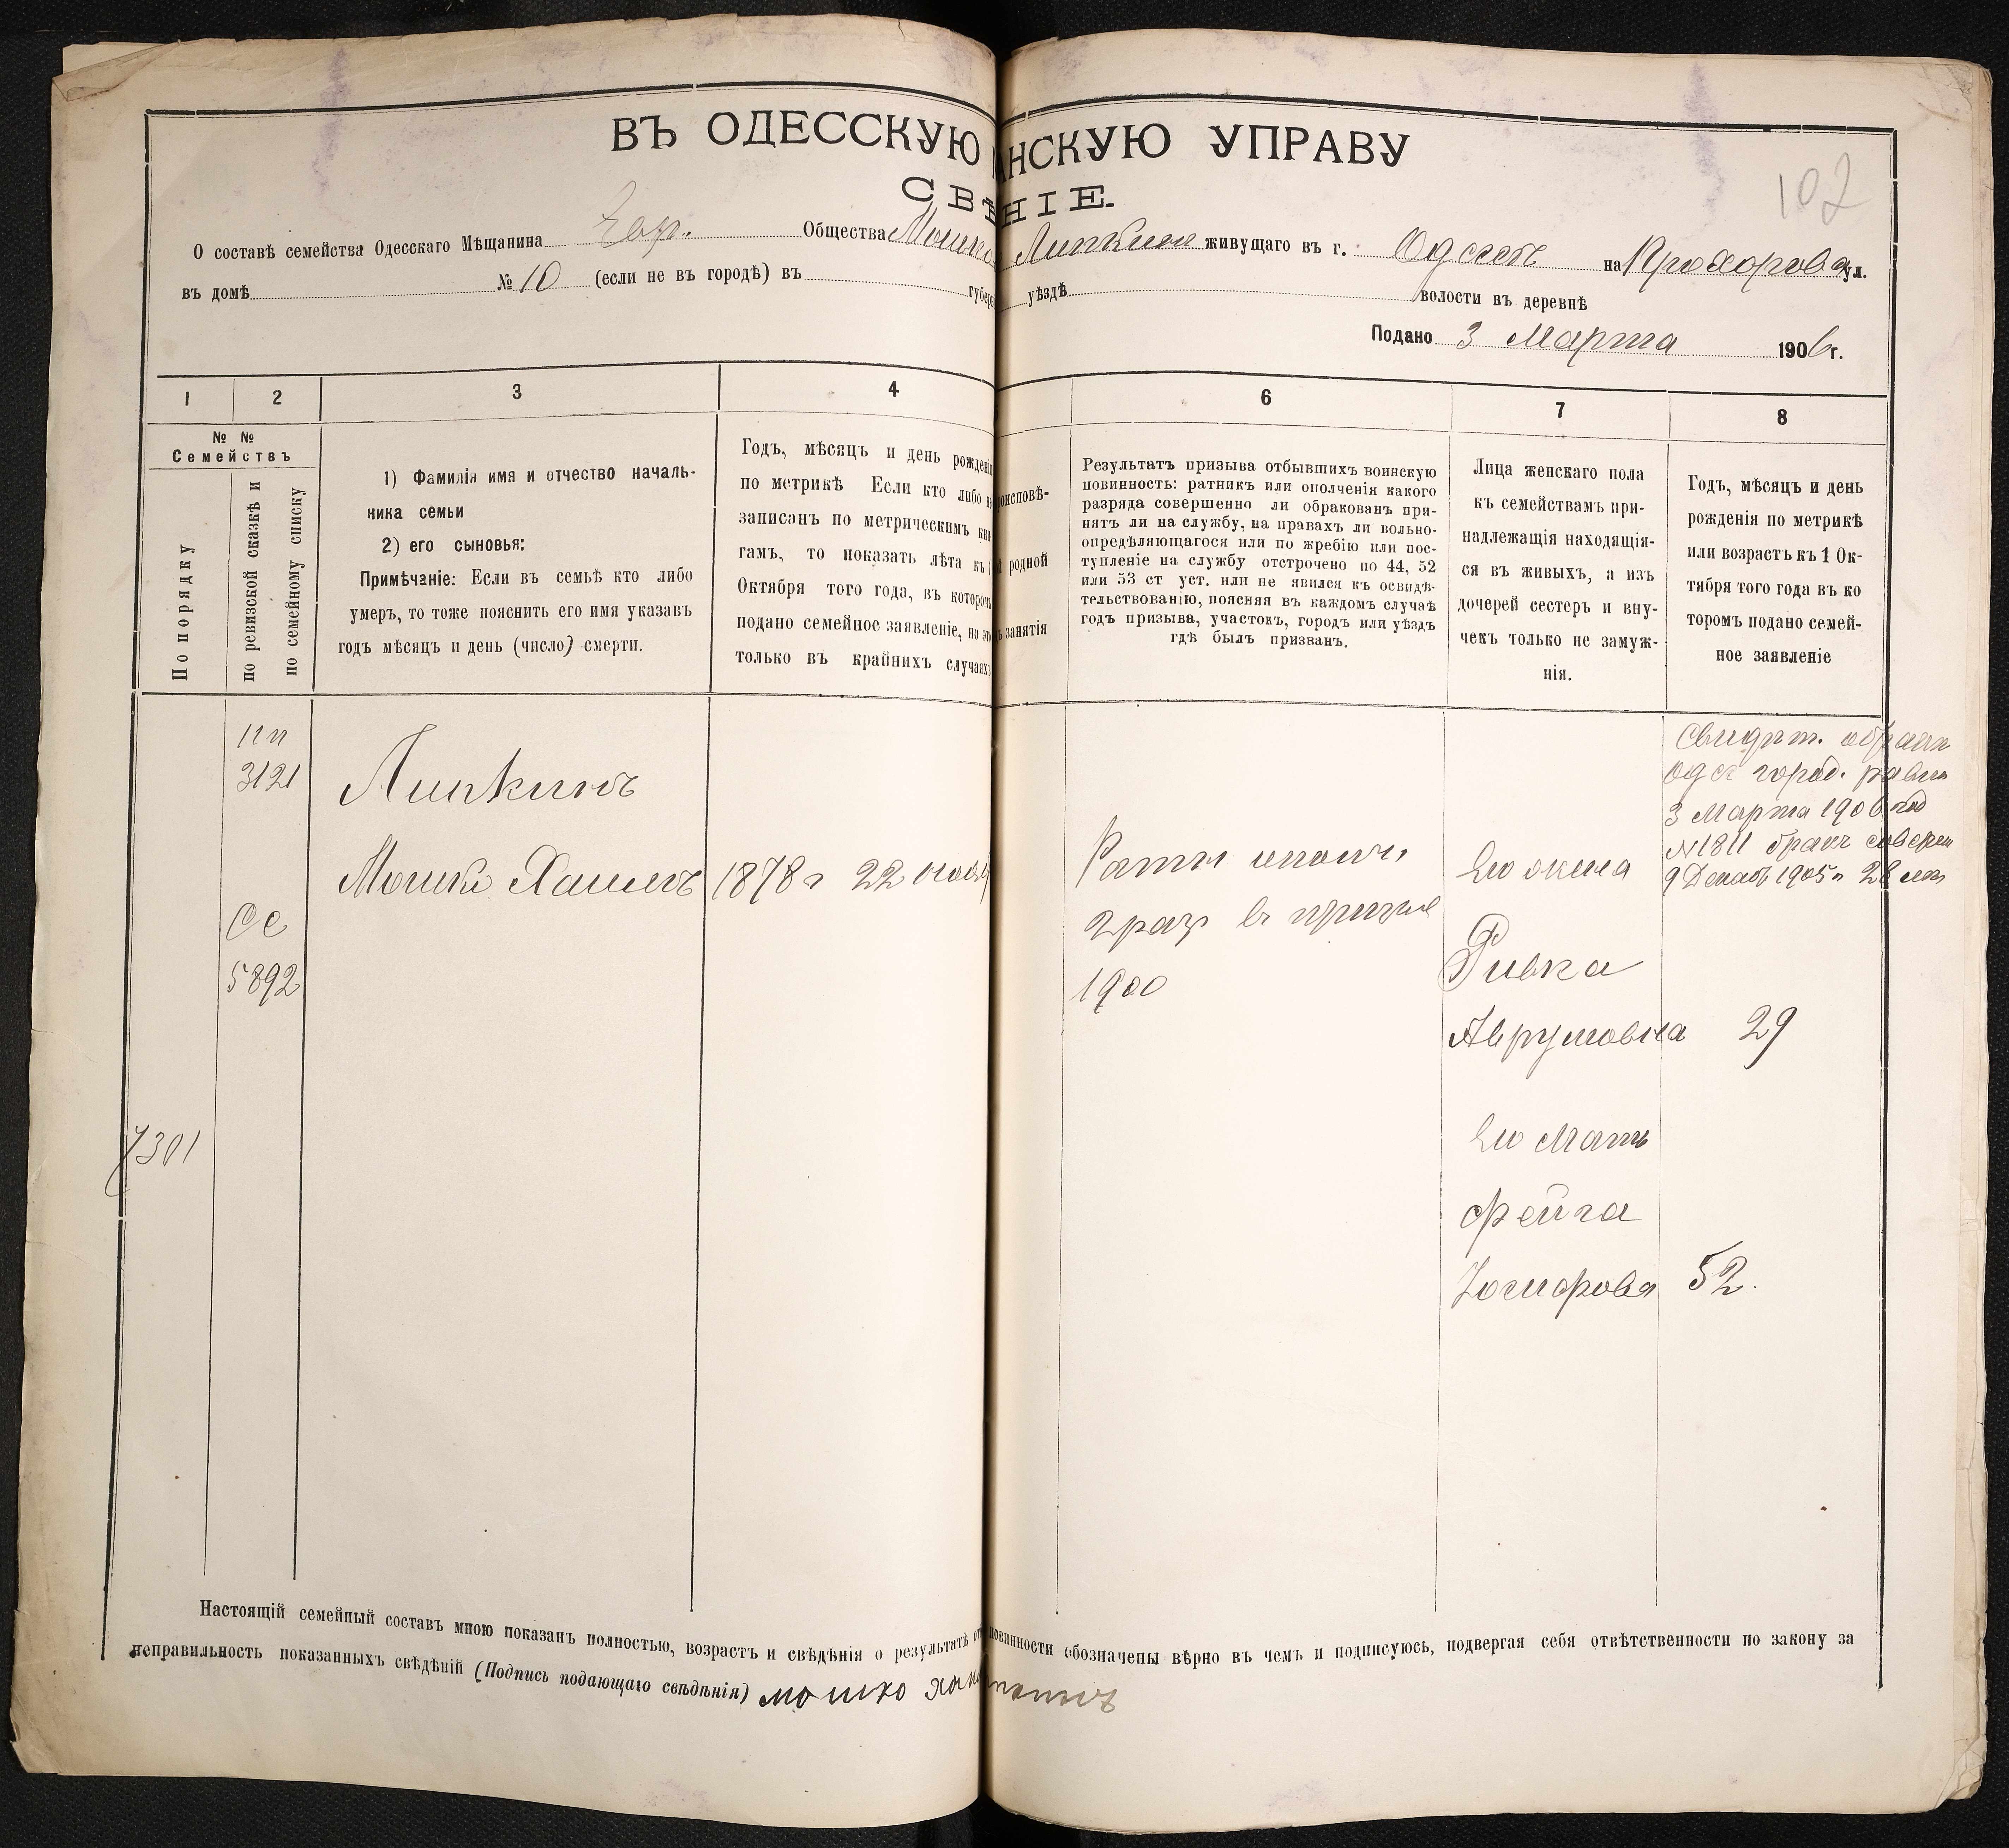 ВЪ ОДЕССКУЮ НСКУЮ УПРАВУ
102
СВѢНІЕ.
О составѣ семейства Одесскаго Мѣщанина Евр. Общества Мошко Липкина живущаго въ г. Одессѣ на Прохоровс ул.
въ домѣ № 10 (если не въ городѣ) въ губерн уѣздѣ волости въ деревнѣ
Подано 3 Марта 1906 г.
1 2 3 4 6 7 8
№ №
Семействъ
По порядку
по ревизской сказкѣ и
по семейному списку
1) Фамилія имя и отчество началь-
ника семьи
2) его сыновья:
Примѣчаніе: Если въ семьѣ кто либо
умеръ, то тоже пояснить его имя указавъ
годъ мѣсяцъ и день (число) смерти.
Годъ, мѣсяцъ и день рожденія
по метрикѣ Если кто либо не
записанъ по метрическимъ кни-
гамъ, то показать лѣта къ 1
Октября того года, въ которомъ
подано семейное заявленіе, но это
только въ крайнихъ случаяхъ
роисповѣ-
й родной
ъ занятія
Результатъ призыва отбывшихъ воинскую
повинность: ратникъ или ополченія какого
разряда совершенно ли обракованъ при-
нятъ ли на службу, на правахъ ли вольно-
опредѣляющагося или по жребію или пос-
тупленіе на службу отстрочено по 44, 52
или 53 ст уст. или не явился къ освидѣ-
тельствованію, поясняя въ каждомъ случаѣ
годъ призыва, участокъ, городъ или уѣздъ
гдѣ былъ призванъ.
Лица женскаго пола
къ семействамъ при-
надлежащія находящія-
ся въ живыхъ, а изъ
дочерей сестеръ и вну-
чекъ только не замуж-
нія.
Годъ, мѣсяцъ и день
рожденія по метрикѣ
или возрастъ къ 1 Ок-
тября того года въ ко
торомъ подано семей-
ное заявленіе
3121
Липкинъ
Мошко Хаимъ 1878 г 22
5892
7301
Ратн ополч
2 разр въ призыв
1900
Его жена
Ривка
Аврумовна 29
Его Мать
Фейга
Іосифова 52.
Свидѣт. о бракѣ
Одес город. равви
3 Марта 1906 год
№ 1811 бракъ соверш
9 Декаб 1905 г 28 лѣт
Настоящій семейный составъ мною показанъ полностью, возрастъ и свѣдѣнія о результатѣ от повинности обозначены вѣрно въ чемъ и подписуюсь, подвергая себя отвѣтственности по закону за
неправильность показанныхъ свѣдѣній (Подпись подающаго свѣдѣнія) Мошко